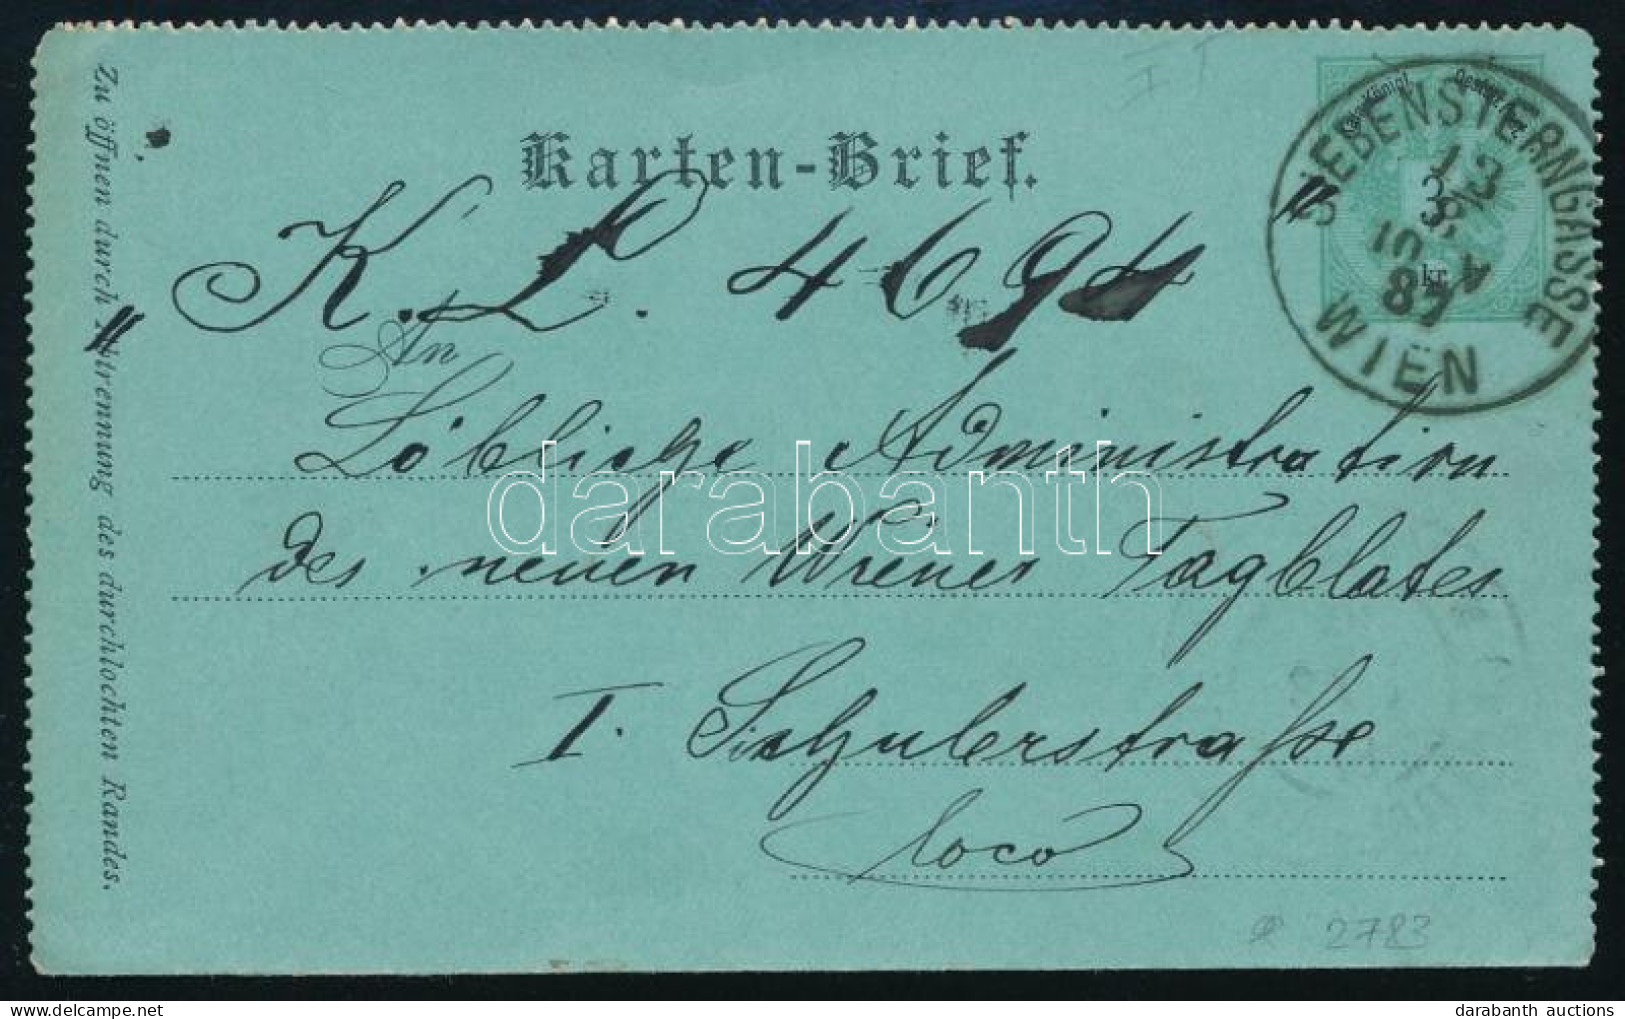 Karten-Brief.
Kais. Königl.
3
kr
SIEBENSTERNGASSE
13
WIEN
"K. L. 4694"
An
Löbliche Administration
des neuen Wiener Tagblates
I. Schulerstraße
loco
Zu öffnen durch Abtrennung des durchlochten Randes.
darabanth
2783
darabanth auctions